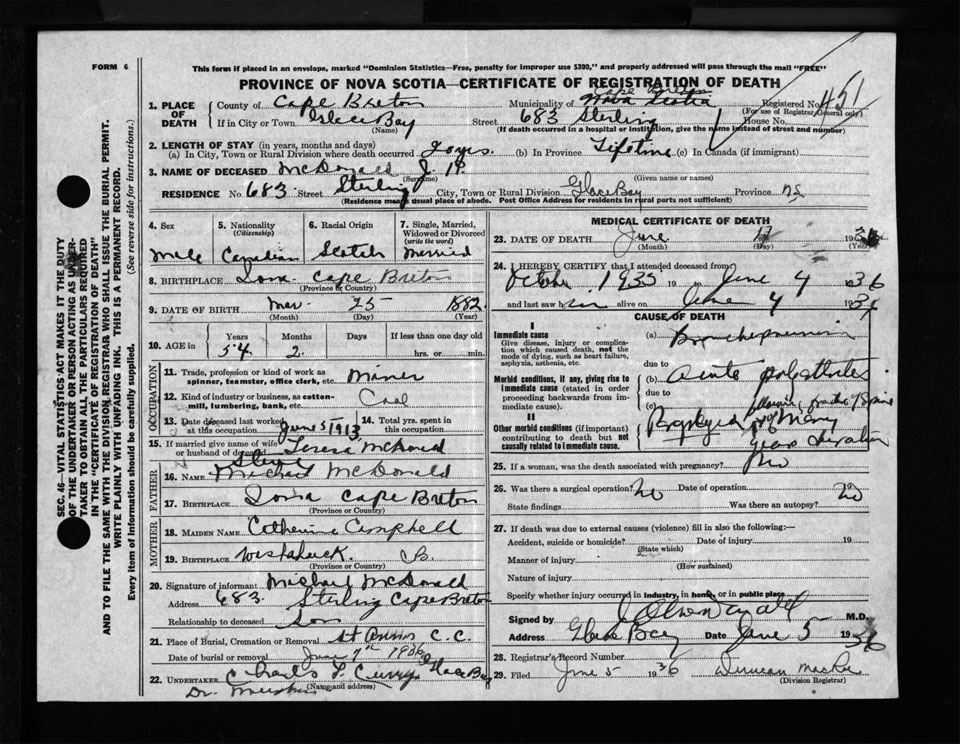 FORM 6
This form if placed in an envelope, marked "Dominion Statistics—Free, penalty for improper use $300," and properly addressed will pass through the mail "FREE"
PROVINCE OF NOVA SCOTIA—CERTIFICATE OF REGISTRATION OF DEATH
451
1. PLACE OF DEATH
County of Cape Breton
Municipality of Cape Breton Nova Scotia
Registered No.
(For use of Registrar General only)
If in City or Town Glace Bay
(Name)
Street 683 Sterling
House No.
(If death occurred in a hospital or institution, give the name instead of street and number)
2. LENGTH OF STAY (in years, months and days)
(a) In City, Town or Rural Division where death occurred yrs. (b) In Province Lifetime (c) In Canada (if immigrant)
3. NAME OF DECEASED McDonald J.
(Surname) (Given name or names)
RESIDENCE No. 683 Street Sterling City, Town or Rural Division Glace Bay Province N.S
(Residence means usual place of abode. Post Office Address for residents in rural parts not sufficient)
4. Sex
Male
5. Nationality (Citizenship)
Canadian
6. Racial Origin
Scotch
7. Single, Married, Widowed or Divorced (write the word)
Married
8. BIRTHPLACE Iona Cape Breton
(Province or Country)
9. DATE OF BIRTH Mar. 25 1882
(Month) (Day) (Year)
10. AGE in
Years 54
Months 2
Days
If less than one day old
hrs. or min.
OCCUPATION
11. Trade, profession or kind of work as spinner, teamster, office clerk, etc. Miner
12. Kind of industry or business, as cotton-mill, lumbering, bank, etc. Coal
13. Date deceased last worked at this occupation June 5 1913
14. Total yrs. spent in this occupation
15. If married give name of wife or husband of deceased Teresa McDonald
FATHER
16. NAME Michael McDonald
17. BIRTHPLACE Iona Cape Breton
(Province or Country)
MOTHER
18. MAIDEN NAME Catherine Campbell
19. BIRTHPLACE C.B.
(Province or Country)
20. Signature of informant Michael McDonald
Address 683 Sterling Cape Breton
Relationship to deceased Son
21. Place of Burial, Cremation or Removal St Anns C.C.
Date of burial or removal June 7th 1936
22. UNDERTAKER Charles L Curry Glace Bay
(Name and address)
MEDICAL CERTIFICATE OF DEATH
23. DATE OF DEATH June 193
(Month) (Day) (Year)
24. I HEREBY CERTIFY that I attended deceased from
October 1935 19 June 4 1936
and last saw him alive on June 4 193
CAUSE OF DEATH
I
Immediate cause
Give disease, injury or complication which caused death, not the mode of dying, such as heart failure, asphyxia, asthenia, etc.
(a) Bronchopneumonia
due to
Morbid conditions, if any, giving rise to immediate cause (stated in order proceeding backwards from immediate cause).
(b) Acute
due to
(c)
II
Other morbid conditions (if important) contributing to death but not causally related to immediate cause.
of many years duration
25. If a woman, was the death associated with pregnancy? No
26. Was there a surgical operation? No Date of operation 19
State findings Was there an autopsy? No
27. If death was due to external causes (violence) fill in also the following:—
Accident, suicide or homicide? Date of injury 19
(State which)
Manner of injury
(How sustained)
Nature of injury
Specify whether injury occurred in industry, in home, or in public place
Signed by M.D.
Address Glace Bay Date June 5 1936
28. Registrar's Record Number
29. Filed June 5 1936 Duncan MacRae
(Division Registrar)
SEC. 46—VITAL STATISTICS ACT MAKES IT THE DUTY
OF THE UNDERTAKER OR PERSON ACTING AS UNDER-
TAKER TO OBTAIN ALL THE PARTICULARS REQUIRED
IN THE "CERTIFICATE OF REGISTRATION OF DEATH"
AND TO FILE THE SAME WITH THE DIVISION REGISTRAR WHO SHALL ISSUE THE BURIAL PERMIT.
WRITE PLAINLY WITH UNFADING INK. THIS IS A PERMANENT RECORD.
Every item of Information should be carefully supplied. (See reverse side for instructions.)